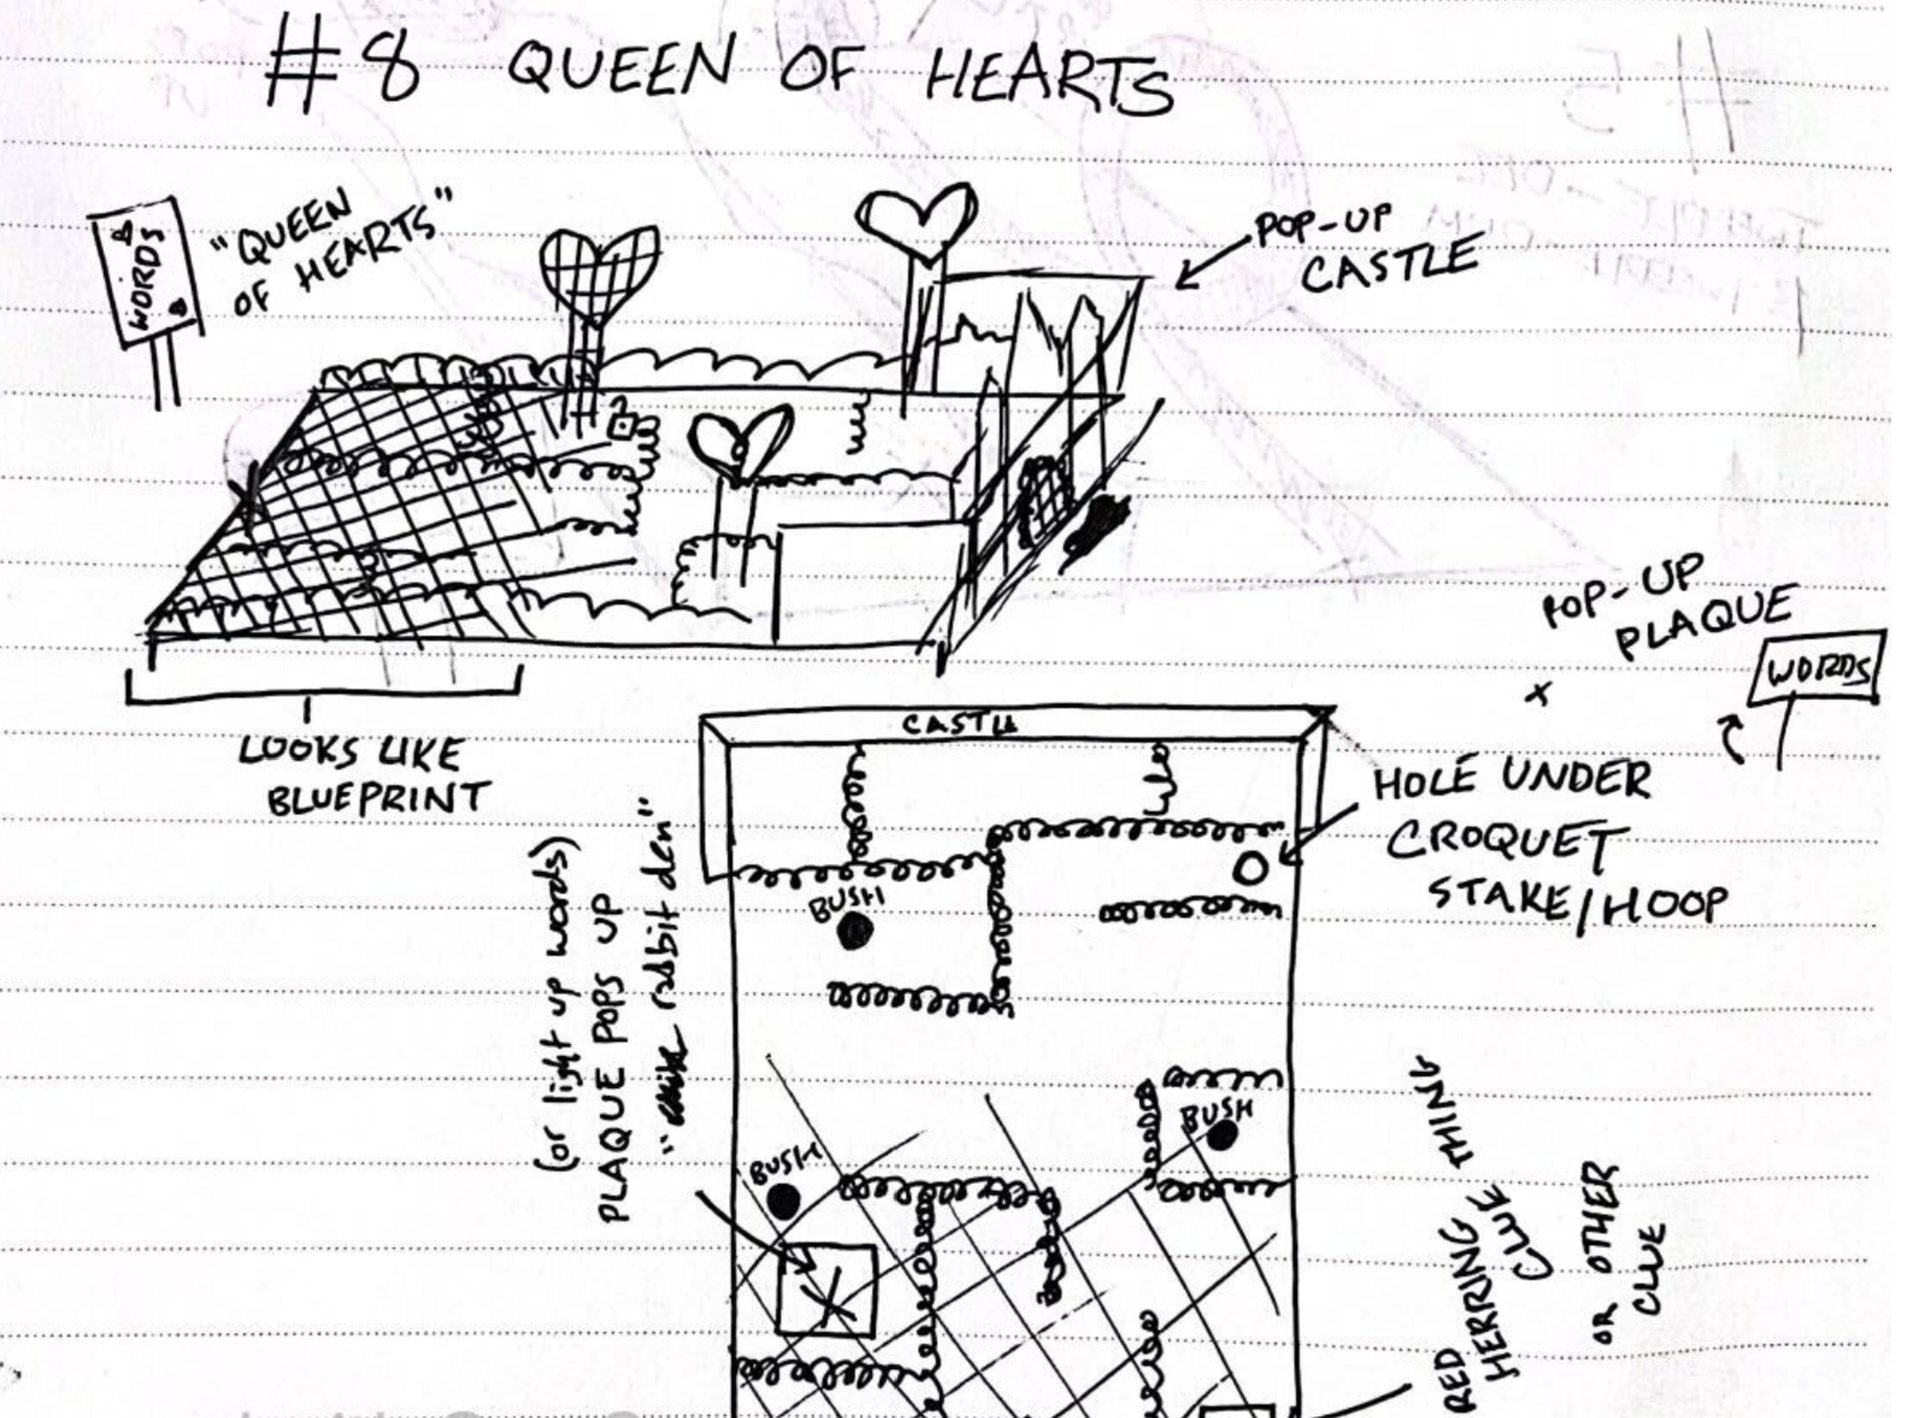 #8 QUEEN OF HEARTS
WORDS
"QUEEN
OF HEARTS"
POP-UP
CASTLE
LOOKS LIKE
BLUEPRINT
POP-UP
PLAQUE
WORDS
x
CASTLE
HOLE UNDER
CROQUET
STAKE/HOOP
BUSH
BUSH
BUSH
(or light up words)
PLAQUE POPS UP
" rabbit den"
X
RED
HERRING THING
CLUE
OR OTHER
CLUE